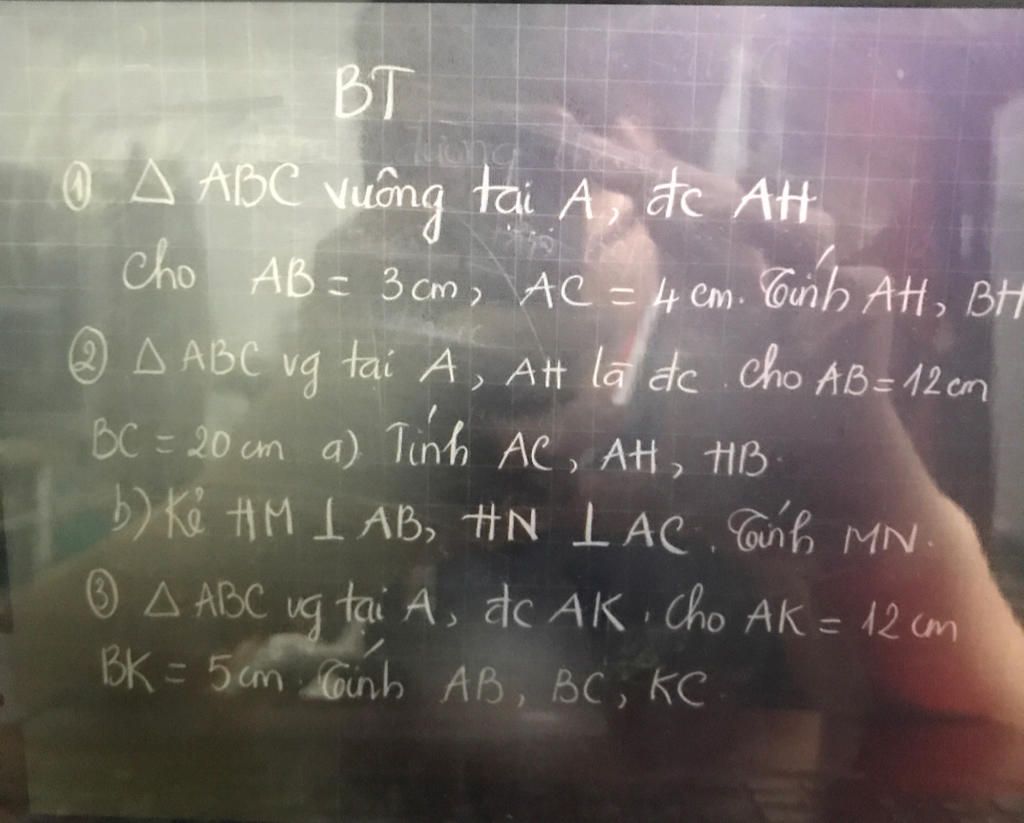 BT
① △ ABC vuông tại A, đc AH
Cho AB = 3cm, AC = 4cm. Tính AH, BH
② △ ABC vg tại A, AH là đc. Cho AB = 12cm
BC = 20cm a) Tính AC, AH, HB.
b) Kẻ HM ⊥ AB, HN ⊥ AC. Tính MN.
③ △ ABC vg tại A, đc AK. Cho AK = 12cm
BK = 5cm. Tính AB, BC, KC